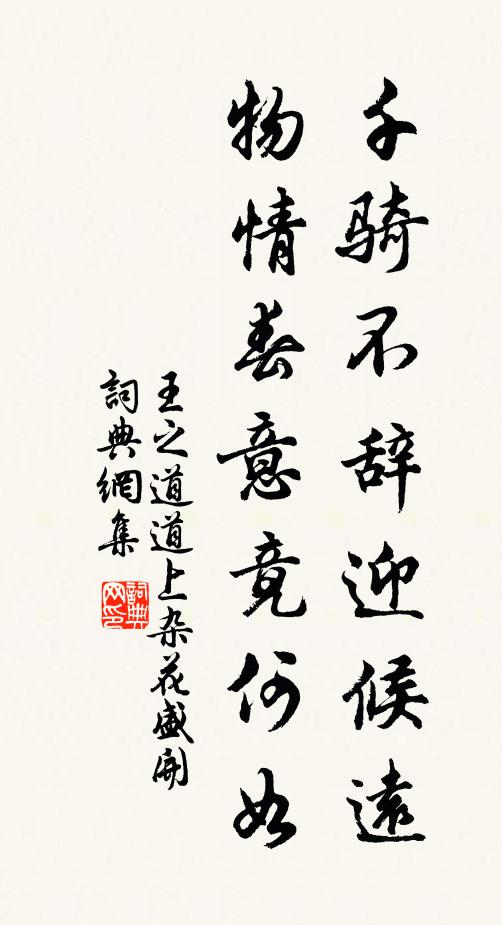 千骑不辞迎候遠
物情春意竟何如
王之道道上杂花盛開
詞典網集
詞典网印